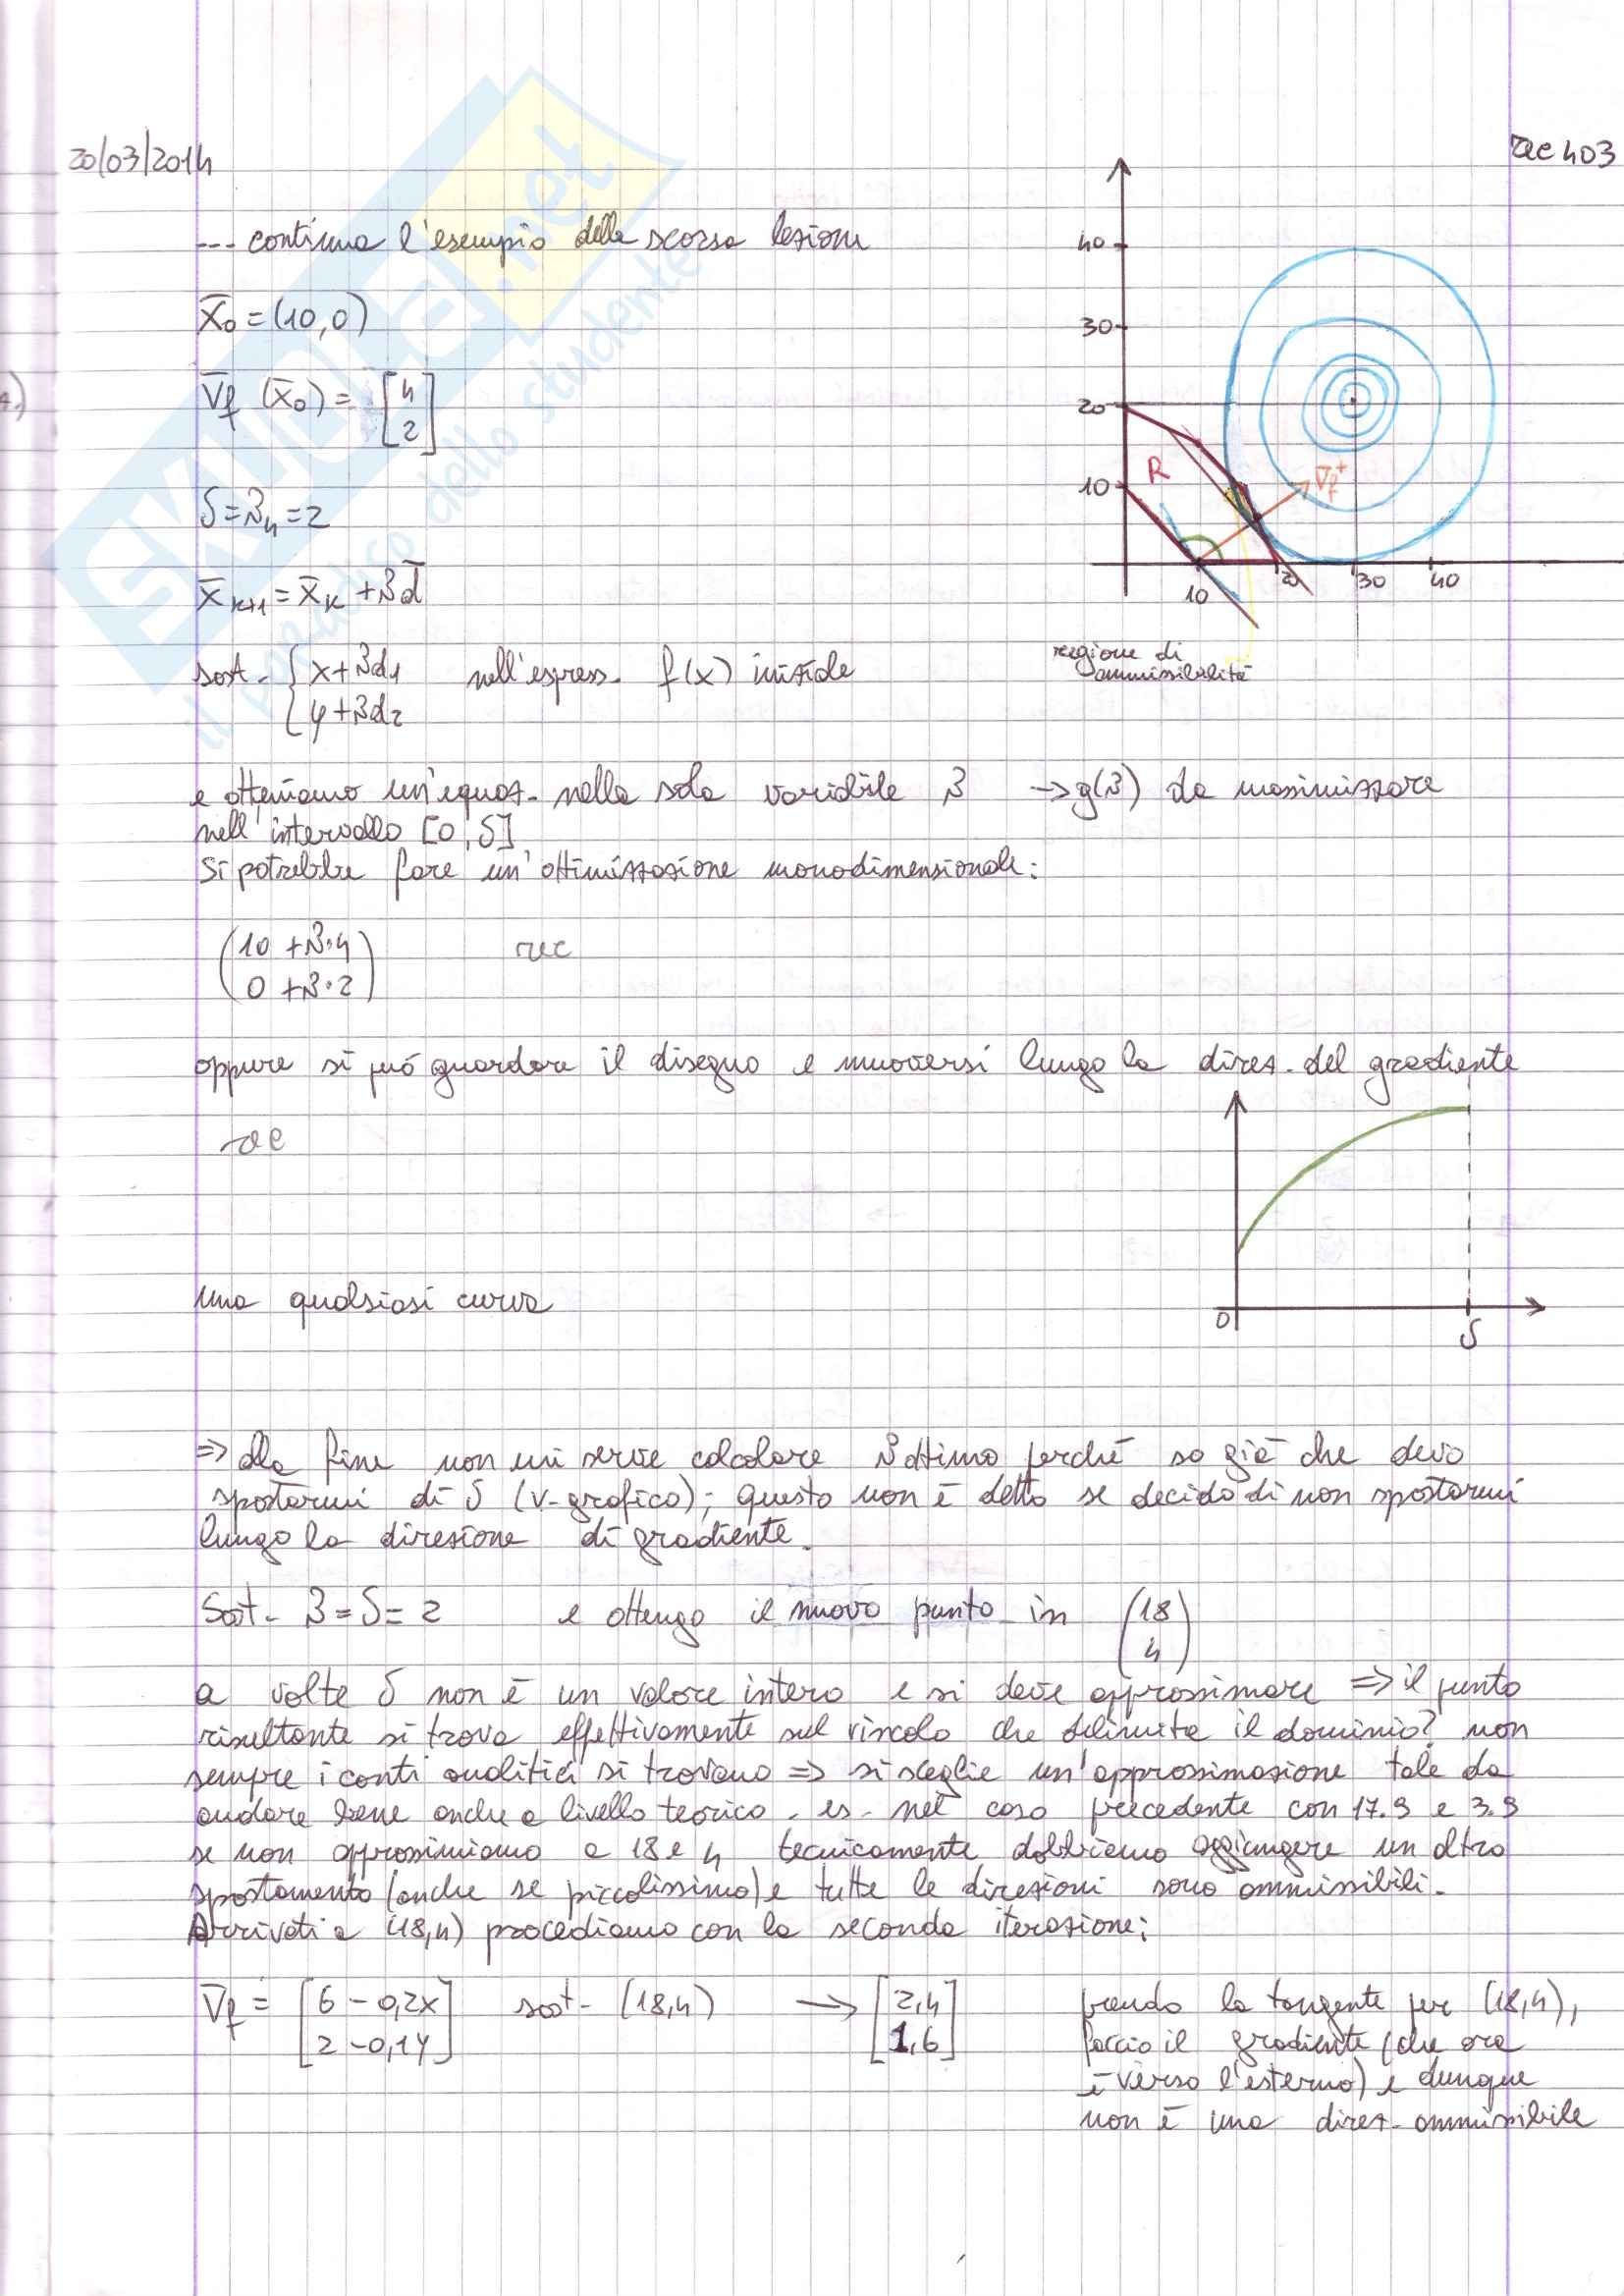 20/03/2014
rec 403
--- continua l'esempio della scorsa lezione
X̄₀ = (10,0)
∇̄f (x̄₀) = [4 2]
δ = β₄ = 2
x̄ₖ₊₁ = x̄ₖ + βd̄
sost. { x+βd₁ nell'espress. f(x) iniziale
y+βd₂
40
30
20
10
R
∇̄f⁺
10 20 30 40
regione di
ammissibilità
e otteniamo un'equaz. nella sola variabile β → g(β) da massimizzare
nell'intervallo [0,δ]
Si potrebbe fare un'ottimizzazione monodimensionale:
(10 + β·4
0 + β·2) rec
oppure si può guardare il disegno e muoversi lungo la direz. del gradiente
rec
una qualsiasi curva
0 δ
⇒ alla fine non mi serve calcolare β ottimo perché so già che devo
spostarmi di δ (v. grafico); questo non è detto se decido di non spostarmi
lungo la direzione di gradiente.
Sost. β = δ = 2 e ottengo il nuovo punto in (18 4)
a volte δ non è un valore intero e si deve approssimare ⇒ il punto
risultante si trova effettivamente sul vincolo che delimita il dominio? non
sempre i conti analitici si trovano ⇒ si sceglie un'approssimazione tale da
andare bene anche a livello teorico. es. nel caso precedente con 17.9 e 3.9
se non approssimiamo a 18 e 4 tecnicamente dobbiamo aggiungere un altro
spostamento (anche se piccolissimo) e tutte le direzioni sono ammissibili.
Arrivati a (18,4) procediamo con la seconda iterazione:
∇̄f = [6 - 0,2x sost. (18,4) → [2,4 prendo la tangente per (18,4),
2 - 0,1y] 1,6] faccio il gradiente (che ora
è verso l'esterno) e dunque
non è una direz. ammissibile
SKUOLA.net
il paradiso dello studente